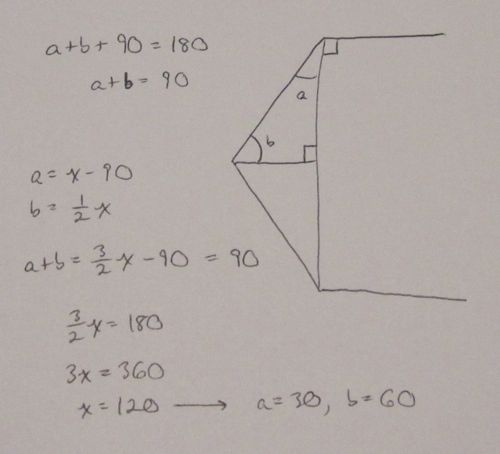 a+b+90=180
a+b=90
a=x-90
b=½x
a+b=3/2x-90=90
3/2x=180
3x=360
x=120 → a=30, b=60
a
b